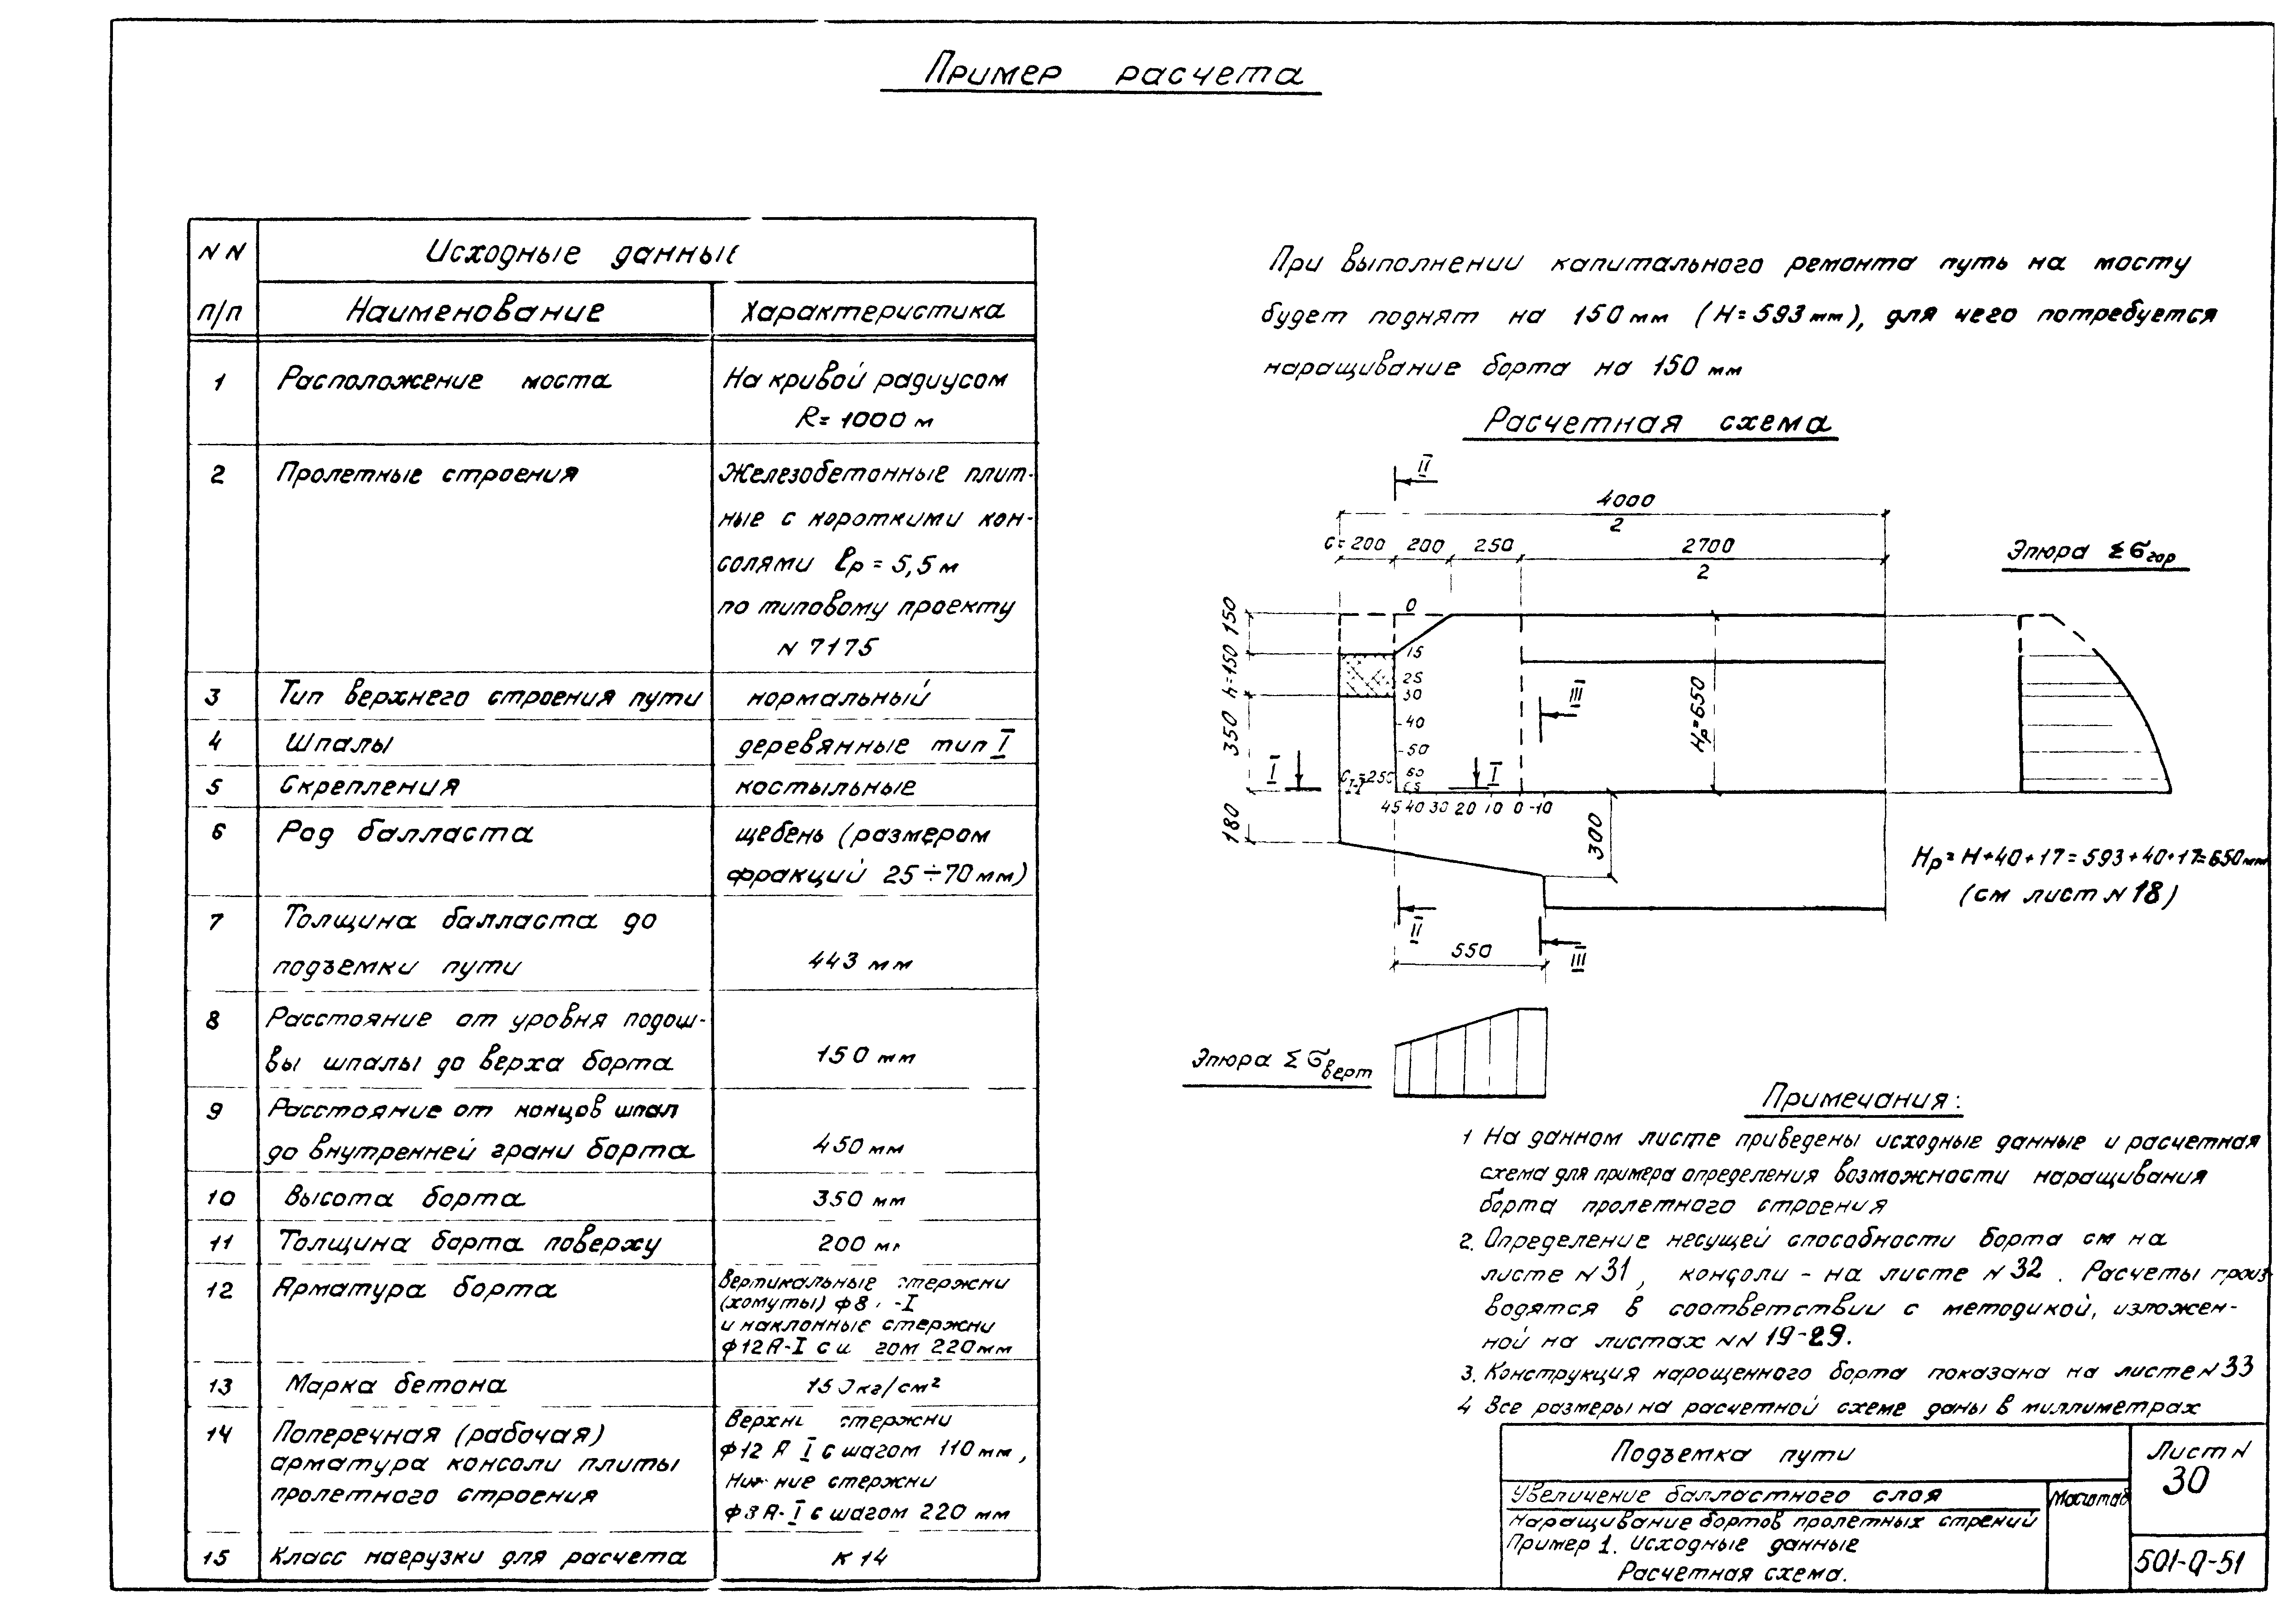 Пример расчета
NN п/п
Исходные данные
Наименование
Характеристика
1
Расположение моста
На кривой радиусом
R= 1000 м
2
Пролетные строения
Железобетонные плит-
ные с короткими кон-
солями ℓр = 5,5 м
по типовому проекту
N 7175
3
Тип верхнего строения пути
нормальный
4
Шпалы
деревянные тип I
5
Скрепления
костыльные
6
Род балласта
щебень (размером
фракций 25÷70 мм)
7
Толщина балласта до
подъемки пути
443 мм
8
Расстояние от уровня подош-
вы шпалы до верха борта
150 мм
9
Расстояние от концов шпал
до внутренней грани борта
450 мм
10
Высота борта
350 мм
11
Толщина борта поверху
200 мм
12
Арматура борта
Вертикальные стержни
(хомуты) ф8 -I
и наклонные стержни
ф12А-I с шагом 220мм
13
Марка бетона
150кг/см²
14
Поперечная (рабочая)
арматура консоли плиты
пролетного строения
Верхние стержни
ф12 А I с шагом 110 мм,
Нижние стержни
А-I с шагом 220 мм
15
Класс нагрузки для расчета
К 14
При выполнении капитального ремонта путь на мосту
будет поднят на 150 мм (Н=593 мм), для чего потребуется
наращивание борта на 150 мм
Расчетная схема
II
4000
2
С=200 200 250 2700
2
150
h=150
350
180
0
15
25
30
40
50
60
65
I
I
С I-I=250
45 40 30 20 10 0 -10
III
Нр=650
300
II
III
550
Эпюра Σσгор
Нр= Н+40+17= 593+40+17=650мм
(см лист N 18)
Эпюра Σσверт
Примечания:
1 На данном листе приведены исходные данные и расчетная
схема для примера определения возможности наращивания
борта пролетного строения
2. Определение несущей способности борта см на
листе N 31, консоли - на листе N 32. Расчеты произ-
водятся в соответствии с методикой, изложен-
ной на листах NN 19-29.
3. Конструкция нарощенного борта показана на листе N 33
4 Все размеры на расчетной схеме даны в миллиметрах
Подъемка пути
Лист N
30
Увеличение балластного слоя
Масштаб
Наращивание бортов пролетных стрений
Пример 1. Исходные данные
Расчетная схема.
501-0-51